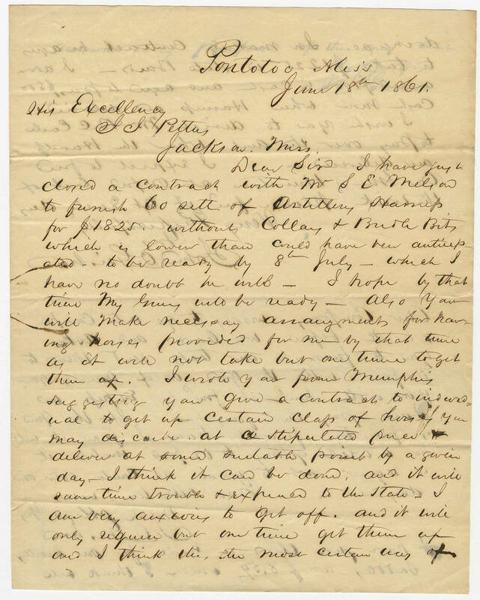 Pontotoc, Miss
June 18th 1861.
His Excellency
J J Pettus
Jackson Miss,
Dear Sir I have just
closed a contract with Mr S E Nelson
to furnish 60 sett of Artillery Harness
for $1825 without Collars & Bridle Bits
which is lower than could have been anticip
ated - to be ready by 8th July - which I
have no doubt he will - I hope by that
time My Guns will be ready - Also You
will make necessary arrangements for hav
ing horses provided for me by that time
as it will not take but one time to get
them up. I wrote you from Memphis
suggesting you give a contract to individ
ual to get up certain class of horses you
may describe at a stipulated price &
deliver at some suitable point by a given
day - I think it can be done, and it will
save time trouble & expense to the State. I
am very anxious to get off. and it will
only require but one time get them up
and I think this the most certain way of